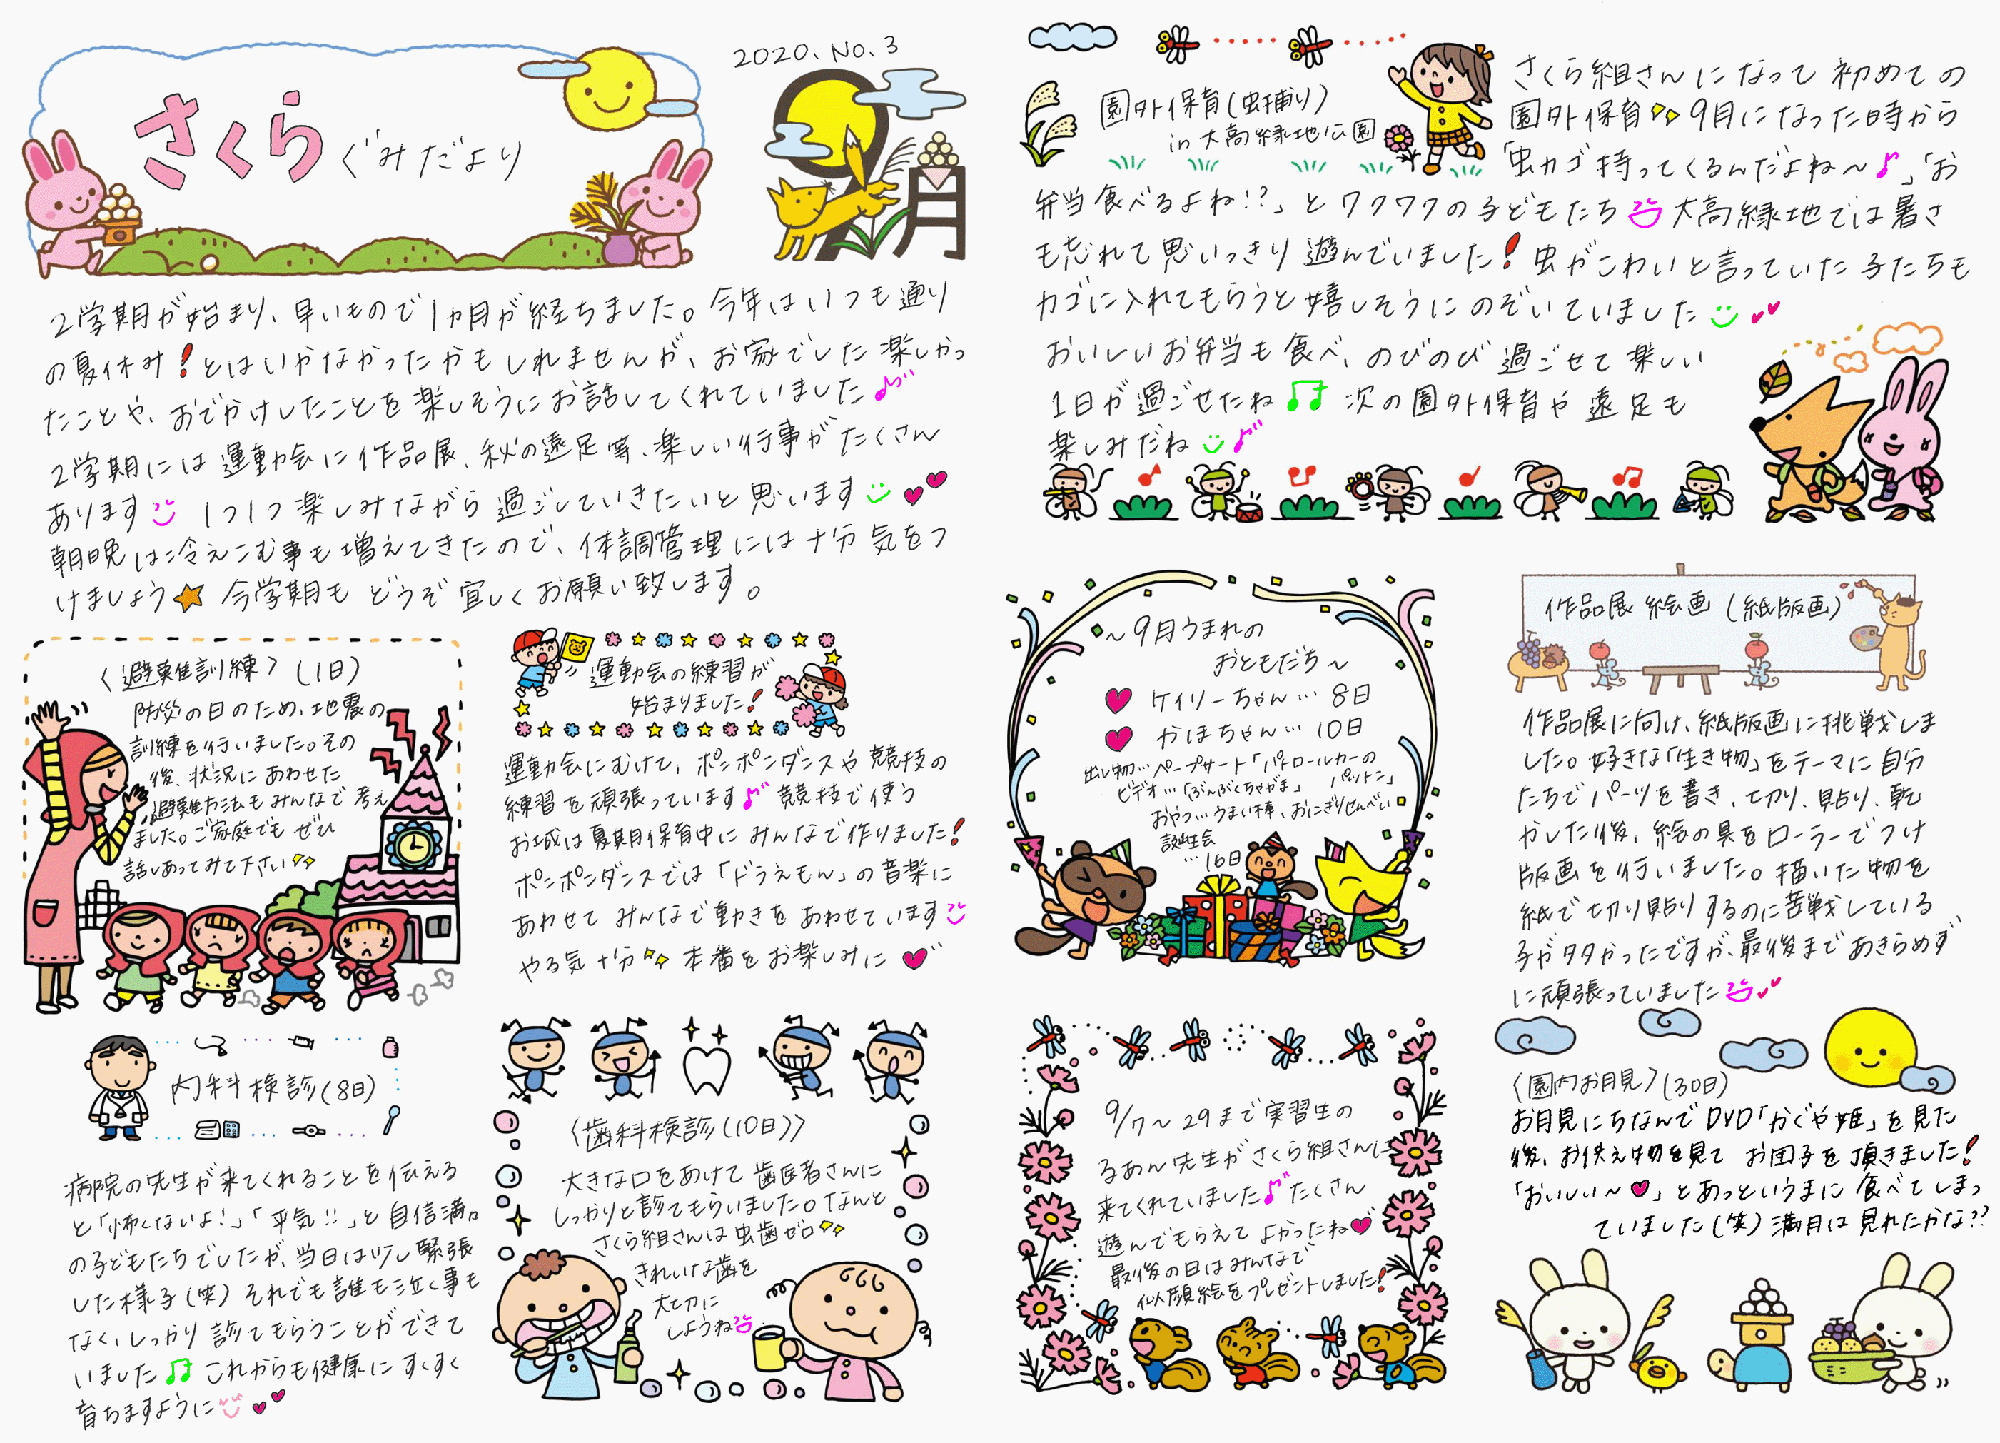 さくらぐみだより
2020. No.3
9月
2学期が始まり、早いもので1ヵ月が経ちました。今年はいつも通り
の夏休み!とはいかなかったかもしれませんが、お家でした楽しかっ
たことや、おでかけしたことを楽しそうにお話してくれていました♪
2学期には運動会に作品展、秋の遠足等、楽しい行事がたくさん
あります 1つ1つ楽しみながら過ごしていきたいと思います
朝晩は冷えこむ事も増えてきたので、体調管理には十分気をつ
けましょう★ 今学期もどうぞ宜しくお願い致します。
〈避難訓練〉(1日)
防災の日のため、地震の
訓練を行いました。その
後、状況にあわせた
避難方法もみんなで考え
ました。ご家庭でもぜひ
話しあってみて下さい
運動会の練習が
始まりました!
運動会にむけて、ポンポンダンスや競技の
練習を頑張っています♪ 競技で使う
お城は夏期保育中にみんなで作りました!
ポンポンダンスでは「ドラえもん」の音楽に
あわせてみんなで動きをあわせています
やる気十分 本番をお楽しみに♥
内科検診(8日)
病院の先生が来てくれることを伝える
と「怖くないよ!」「平気!!」と自信満々
の子どもたちでしたが、当日は少し緊張
した様子(笑) それでも誰も泣く事も
なく、しっかり診てもらうことができて
いました♫ これからも健康にすくすく
育ちますように
〈歯科検診(10日)〉
大きな口をあけて歯医者さんに
しっかりと診てもらいました。なんと
さくら組さんは虫歯ゼロ
きれいな歯を
大切に
しようね
園外保育(虫捕り)
in 大高緑地公園
さくら組さんになって初めての
園外保育 9月になった時から
「虫カゴ持ってくるんだよね〜♪」「お
弁当食べるよね!?」とワクワクの子どもたち 大高緑地では暑さ
も忘れて思いっきり遊んでいました! 虫がこわいと言っていた子たちも
カゴに入れてもらうと嬉しそうにのぞいていました
おいしいお弁当も食べ、のびのび過ごせて楽しい
1日が過ごせたね♫ 次の園外保育や遠足も
楽しみだね♪
〜9月うまれの
おともだち〜
♥ ケイリーちゃん… 8日
♥ かほちゃん… 10日
出し物…ペープサート「パトロールカーの
パットン」
ビデオ…「ぶんぶくちゃがま」
おやつ…うまい棒、おにぎりせんべい
誕生会
…16日
作品展 絵画 (紙版画)
作品展に向け、紙版画に挑戦しま
した。好きな「生き物」をテーマに自分
たちでパーツを書き、切り、貼り、乾
かした後、絵の具をローラーでつけ
版画を行いました。描いた物を
紙で切り貼りするのに苦戦している
子が多かったですが、最後まであきらめず
に頑張っていました
9/7〜29まで実習生の
るあん先生がさくら組さんに
来てくれていました♪ たくさん
遊んでもらえてよかったね♥
最後の日はみんなで
似顔絵をプレゼントしました!
〈園内お月見〉(30日)
お月見にちなんでDVD「かぐや姫」を見た
後、お供え物を見てお団子を頂きました!
「おいしい〜♥」とあっというまに食べてしまっ
ていました(笑) 満月は見れたかな??